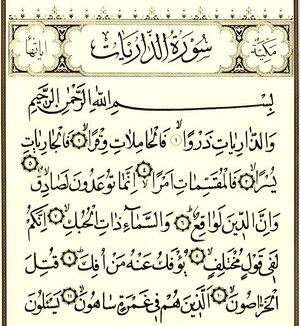 مكية سورة الذاريات آياتها
بِسْمِ اللَّهِ الرَّحْمَنِ الرَّحِيمِ
وَالذَّارِيَاتِ ذَرْوًا ۝١ فَالْحَامِلَاتِ وِقْرًا ۝٢ فَالْجَارِيَاتِ
يُسْرًا ۝٣ فَالْمُقَسِّمَاتِ أَمْرًا ۝٤ إِنَّمَا تُوعَدُونَ لَصَادِقٌ ۝٥
وَإِنَّ الدِّينَ لَوَاقِعٌ ۝٦ وَالسَّمَاءِ ذَاتِ الْحُبُكِ ۝٧ إِنَّكُمْ
لَفِي قَوْلٍ مُخْتَلِفٍ ۝٨ يُؤْفَكُ عَنْهُ مَنْ أُفِكَ ۝٩ قُتِلَ
الْخَرَّاصُونَ ۝١٠ الَّذِينَ هُمْ فِي غَمْرَةٍ سَاهُونَ ۝١١ يَسْئَلُونَ